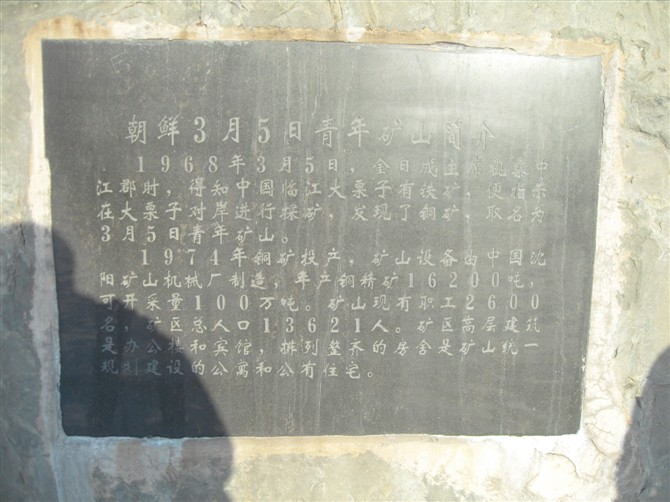 朝鲜3月5日青年矿山简介
1968年3月5日，金日成主席视察中
江郡时，得知中国临江大栗子有铁矿，便指示
在大栗子对岸进行探矿，发现了铜矿，取名为
3月5日青年矿山。
1974年铜矿投产，矿山设备由中国沈
阳矿山机械厂制造，年产铜精矿16200吨，
可开采量100万吨。矿山现有职工2600
名，矿区总人口13621人。矿区高层建筑
是办公楼和宾馆，排列整齐的房舍是矿山统一
规划建设的公寓和公有住宅。